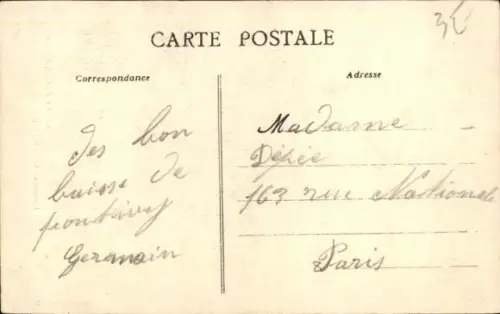 3L
CARTE POSTALE
Correspondance
Adresse
des bon
baisse de
pontivy
Germain
Madame
Dépée
163 rue Nationale
Paris